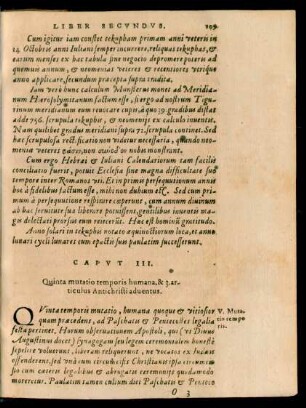 LIBER SECVNDVS. 109
Cum igitur iam constet tekupham primam anni veteris in
24 Octobris anni Iuliani semper incurrere, reliquas tekuphas, &
earum menses ex hac tabula sine negocio depromere poteris ad
quemuis annum, & neomenias veteres & recentiores vtrique
anno applicare, secundum præcepta supra tradita.
Iam verò hunc calculum Munsterus monet ad Meridia-
num Hierosolymitanum factum esse, ergo ad nostrum Tigu-
rinum meridianum eum reuocare cupis, à quo 39 gradibus distat
adde 756. scrupula tekuphis, & neomenijs ex calculo inuentis.
Nam quilibet gradus meridiani supra 71. scrupula continet. Sed
hæc scrupulosa rectificatio non videtur necessaria, quando neo-
menia veteres nobis monstrant.
Cum ergo Hebræi & Iuliani Calendariorum tam facilis
conciliatio fuerit, potuit Ecclesia sine magna difficultate suo
tempore inter Romanos vti. Et in primis persequutionum annis
hoc à fidelibus factum esse, mihi non dubium est. Sed cum pri-
mum à persequutione respirare cœperunt, cum annum diuinum
ab hac seruitute sua libertate potuissent, gentilibus inuentis ma-
gis delectati prorsus eum reiecerunt. Hæc est hominis gentilitas.
Anno solari in tekuphis notato æquinoctiorum loca, et anno
lunari cycli lunares cum epactis suis paulatim successerunt.
CAPVT III.
Quinta mutatio temporis humana, & 3. ar-
ticulus Antichristi aduentus.
QVinta temporis mutatio, humana quoque & vitiosior
quam præcedens, ad Paschatis & Pentecostes legalia
festa pertinet. Horum obseruationem Apostoli, quo (vt Diuus
Augustinus docet) Synagogam seu legem ceremonialem honestè
sepelire voluerunt, liberam reliquerunt, ne vocatos ex Iudæis
offenderent, sed sine circumcisione Christianorum circumci-
sum & aliorum abrogatas ceremonias quodammodo
morerentur. Paulatim tamen cultum diei Paschatis & Penteco
V. Muta-
tio tempo-
ris.
O 3